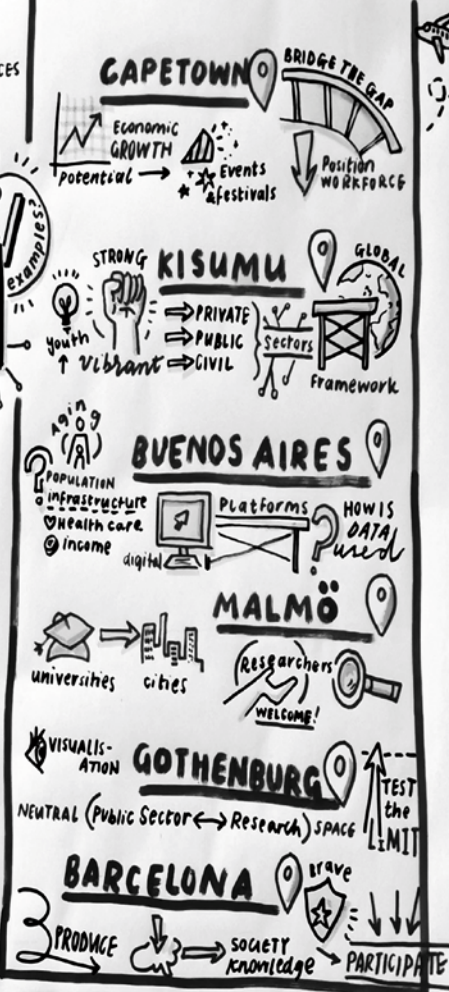 CES
CAPETOWN
BRIDGE THE GAP
Economic
GROWTH
Potential
Events
& festivals
Position
WORKFORCE
examples?
KISUMU
STRONG
GLOBAL
Youth
Vibrant
PRIVATE
PUBLIC
CIVIL
Sectors
Framework
Aging
POPULATION
infrastructure
Health care
income
BUENOS AIRES
digital
Platforms
HOW IS
DATA
used
?
MALMÖ
universities
cities
Researchers
WELCOME!
VISUALIS-
ATION
GOTHENBURG
NEUTRAL (Public Sector ↔ Research) SPACE
TEST
the
LIMIT
BARCELONA
Brave
PRODUCE
SOCIETY
Knowledge
PARTICIPATE